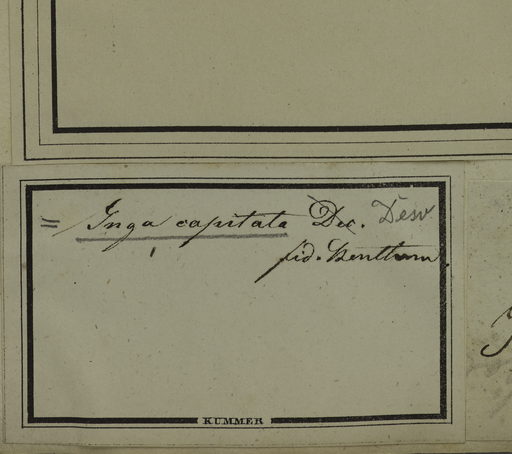 = Inga capitata Dec. Desv
fid. Bentham.
KUMMER